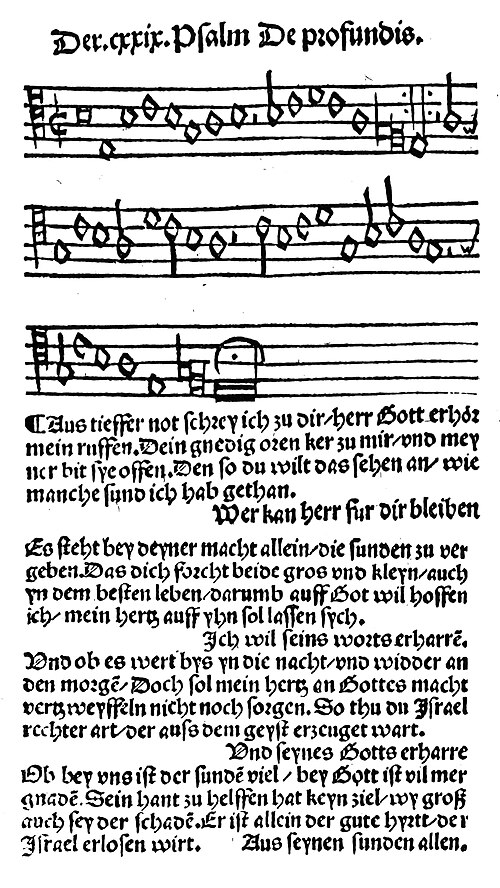 Der.cxxix.Psalm De profundis.
¶Aus tieffer not schrey ich zu dir/herr Gott erhör
mein ruffen.Dein gnedig oren ker zu mir/vnd mey
ner bit sye offen.Den so du wilt das sehen an/ wie
manche sund ich hab gethan.
Wer kan herr fur dir bleiben
Es steht bey deyner macht allein/die sunden zu ver
geben.Das dich forcht beide gros vnd kleyn/auch
yn dem besten leben/darumb auff Got wil hoffen
ich/ mein hertz auff yhn sol lassen sych.
Ich wil seins worts erharrē.
Vnd ob es wert bys yn die nacht/vnd widder an
den morgē/Doch sol mein hertz an Gottes macht
vertzweyffeln nicht noch sorgen. So thu du Israel
rechter art/der auss dem geyst erzeuget wart.
Vnd seynes Gotts erharre
Ob bey vns ist der sundē viel / bey Got ist vil mer
gnadē.Sein hant zu helffen hat keyn ziel/wy groß
auch sey der schadē.Er ist allein der gute hyrtt/der
Israel erlosen wirt. Aus seynen sunden allen.